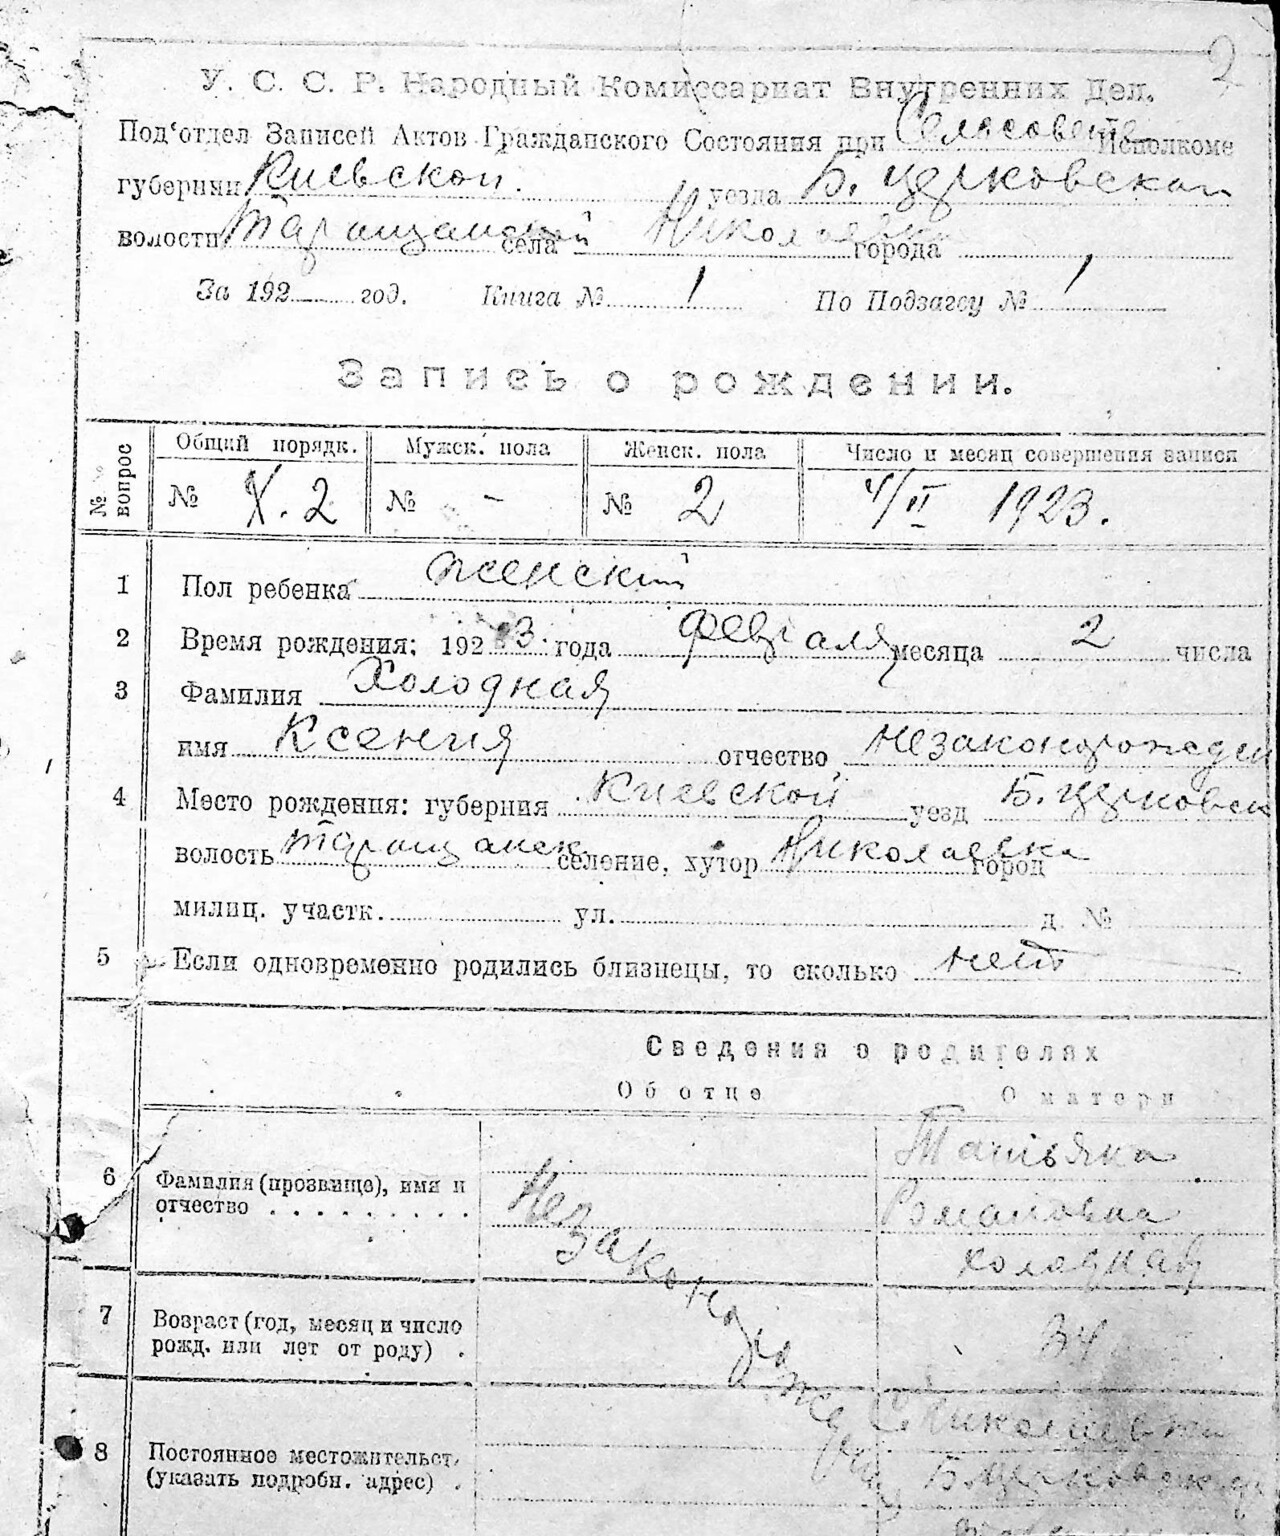 2
У. С. С. Р. Народный Комиссариат Внутренних Дел.
Под‘отдел Записей Актов Гражданского Состояния при Сельсовете Исполкоме
губернии Киевской. уезда Б. Церковской
волости Таращанской села Николаевка города
За 192 год. Книга № 1 По Подзагсу № 1
Запись о рождении.
№ вопрос
Общий порядк. Мужск. пола Женск. пола Число и месяц совершения записи
№ 2 № - № 2 4/II 1923.
1 Пол ребенка женский
2 Время рождения: 1923 года февраля месяца 2 числа
3 Фамилия Холодная
имя Ксения отчество незаконорожден
4 Место рождения: губерния Киевской уезд Б. Церковск
волость Таращанск селение, хутор Николаевка город
милиц. участк. ул. д. №
5 Если одновременно родились близнецы, то сколько нет
Сведения о родителях
Об отце О матери
6 Фамилия (прозвище), имя и отчество Незаконорожден Татьяна
Романовна
Холодная
7 Возраст (год, месяц и число рожд. или лет от роду) . 34
8 Постоянное местожительст. (указать подробн. адрес) . с. Николаевки
Б. Церковск